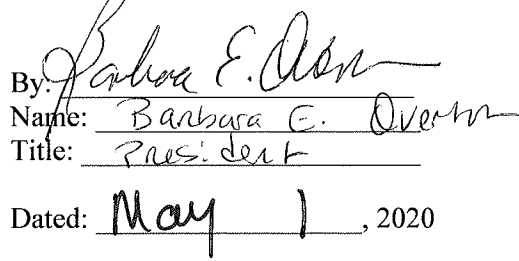 By: Barbara E. Overton
Name: Barbara E. Overton
Title: President
Dated: May 1, 2020